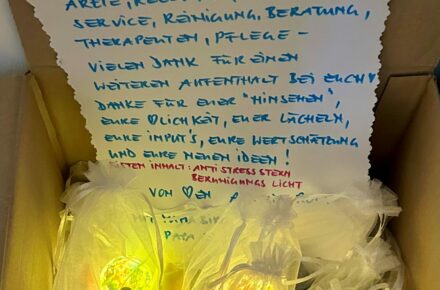 ÄRZTE,
SERVICE, REINIGUNG, BERATUNG,
THERAPEUTEN, PFLEGE –
VIELEN DANK FÜR EINEN
WEITEREN AUFENTHALT BEI EUCH♥
DANKE FÜR EUER "HINSEHEN",
EURE ♡LICHKEIT, EUER LÄCHELN,
EURE INPUT'S, EURE WERTSCHÄTZUNG
UND EURE NEUEN IDEEN!
INHALT: ANTI STRESS STERN
BERUHIGUNGS LICHT
VON ♡EN
PAPA